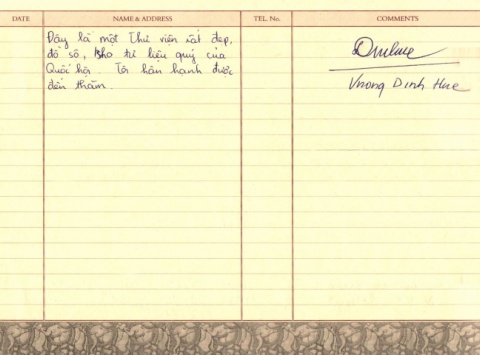 DATE NAME & ADDRESS TEL. No. COMMENTS
Đây là một Thư viện rất đẹp,
đồ sộ, kho tư liệu quý của
Quốc hội. Tôi hân hạnh được
đến thăm.
Vuong Dinh Hue